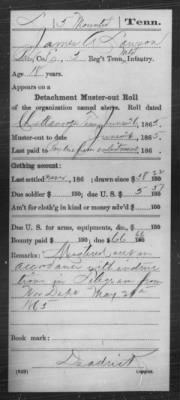 L | 3 Mounted | Tenn.
James A Lawson
Co. C, 3 Mtd Reg't Tenn., Infantry.
Age years.
Appears on a
Detachment Muster-out Roll
of the organization named above. Roll dated
Chattanooga Tenn 186 5.
Muster-out to date 186 5.
Last paid to enrollment 186 .
Clothing account:
Last settled never 186 ; drawn since $ 38 22/100
Due soldier $ /100 due U.S. $ 5 57/100
Am't for cloth'g in kind or money adv'd $ /100
Due U.S. for arms, equipments, &c., $ /100
Bounty paid $ /100; due $ 66 /100
Remarks: Mustered out in
accordance with instruc
tions in Telegram from
War Dept May
1865
Book mark:
Deadrick
Copyist.